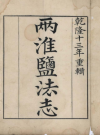 乾隆十三年重鐫
兩淮鹽法志